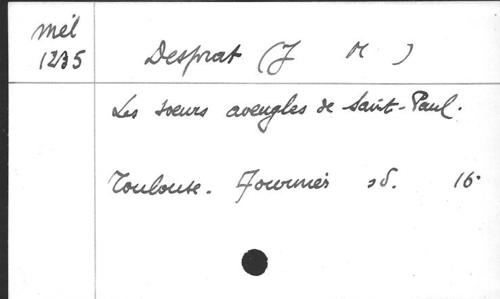 Mél
1235
Desprat (J M)
Les soeurs aveugles de Saint-Paul.
Toulouse. Fournier sd. 16°